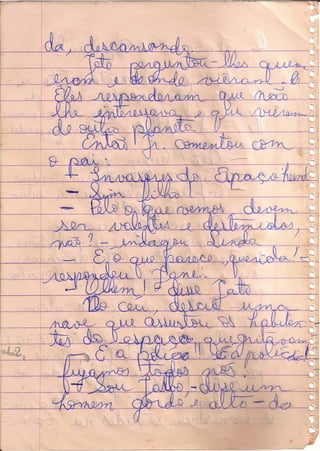 da, descansando.
Jato perguntou-lhes quem
eram e de onde vieram.
Eles responderam que não
lhe interessava e que vieram
de outro planeta.
Então Jr. comentou com
o pai:
— Invasores do Espaço hein!
— Sim, filho!
— Pelo que vemos, devem
ser valentes e destemidos,
não? — indagou Linda
— É o que parece, querida! —
respondeu Jane.
— Olhem! — disse Jato
Do céu, descia uma
nave que assustou os habitan-
tes do espaço, que gritavam
— É a polícia! É a polícia!
fujamos todos nós!
— Sou Talbo, — disse um
homem gordo e alto — da